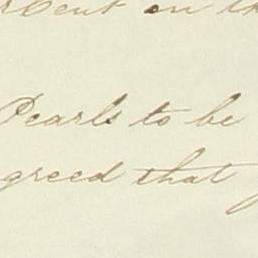 rcent on th
Pearls to be
greed that